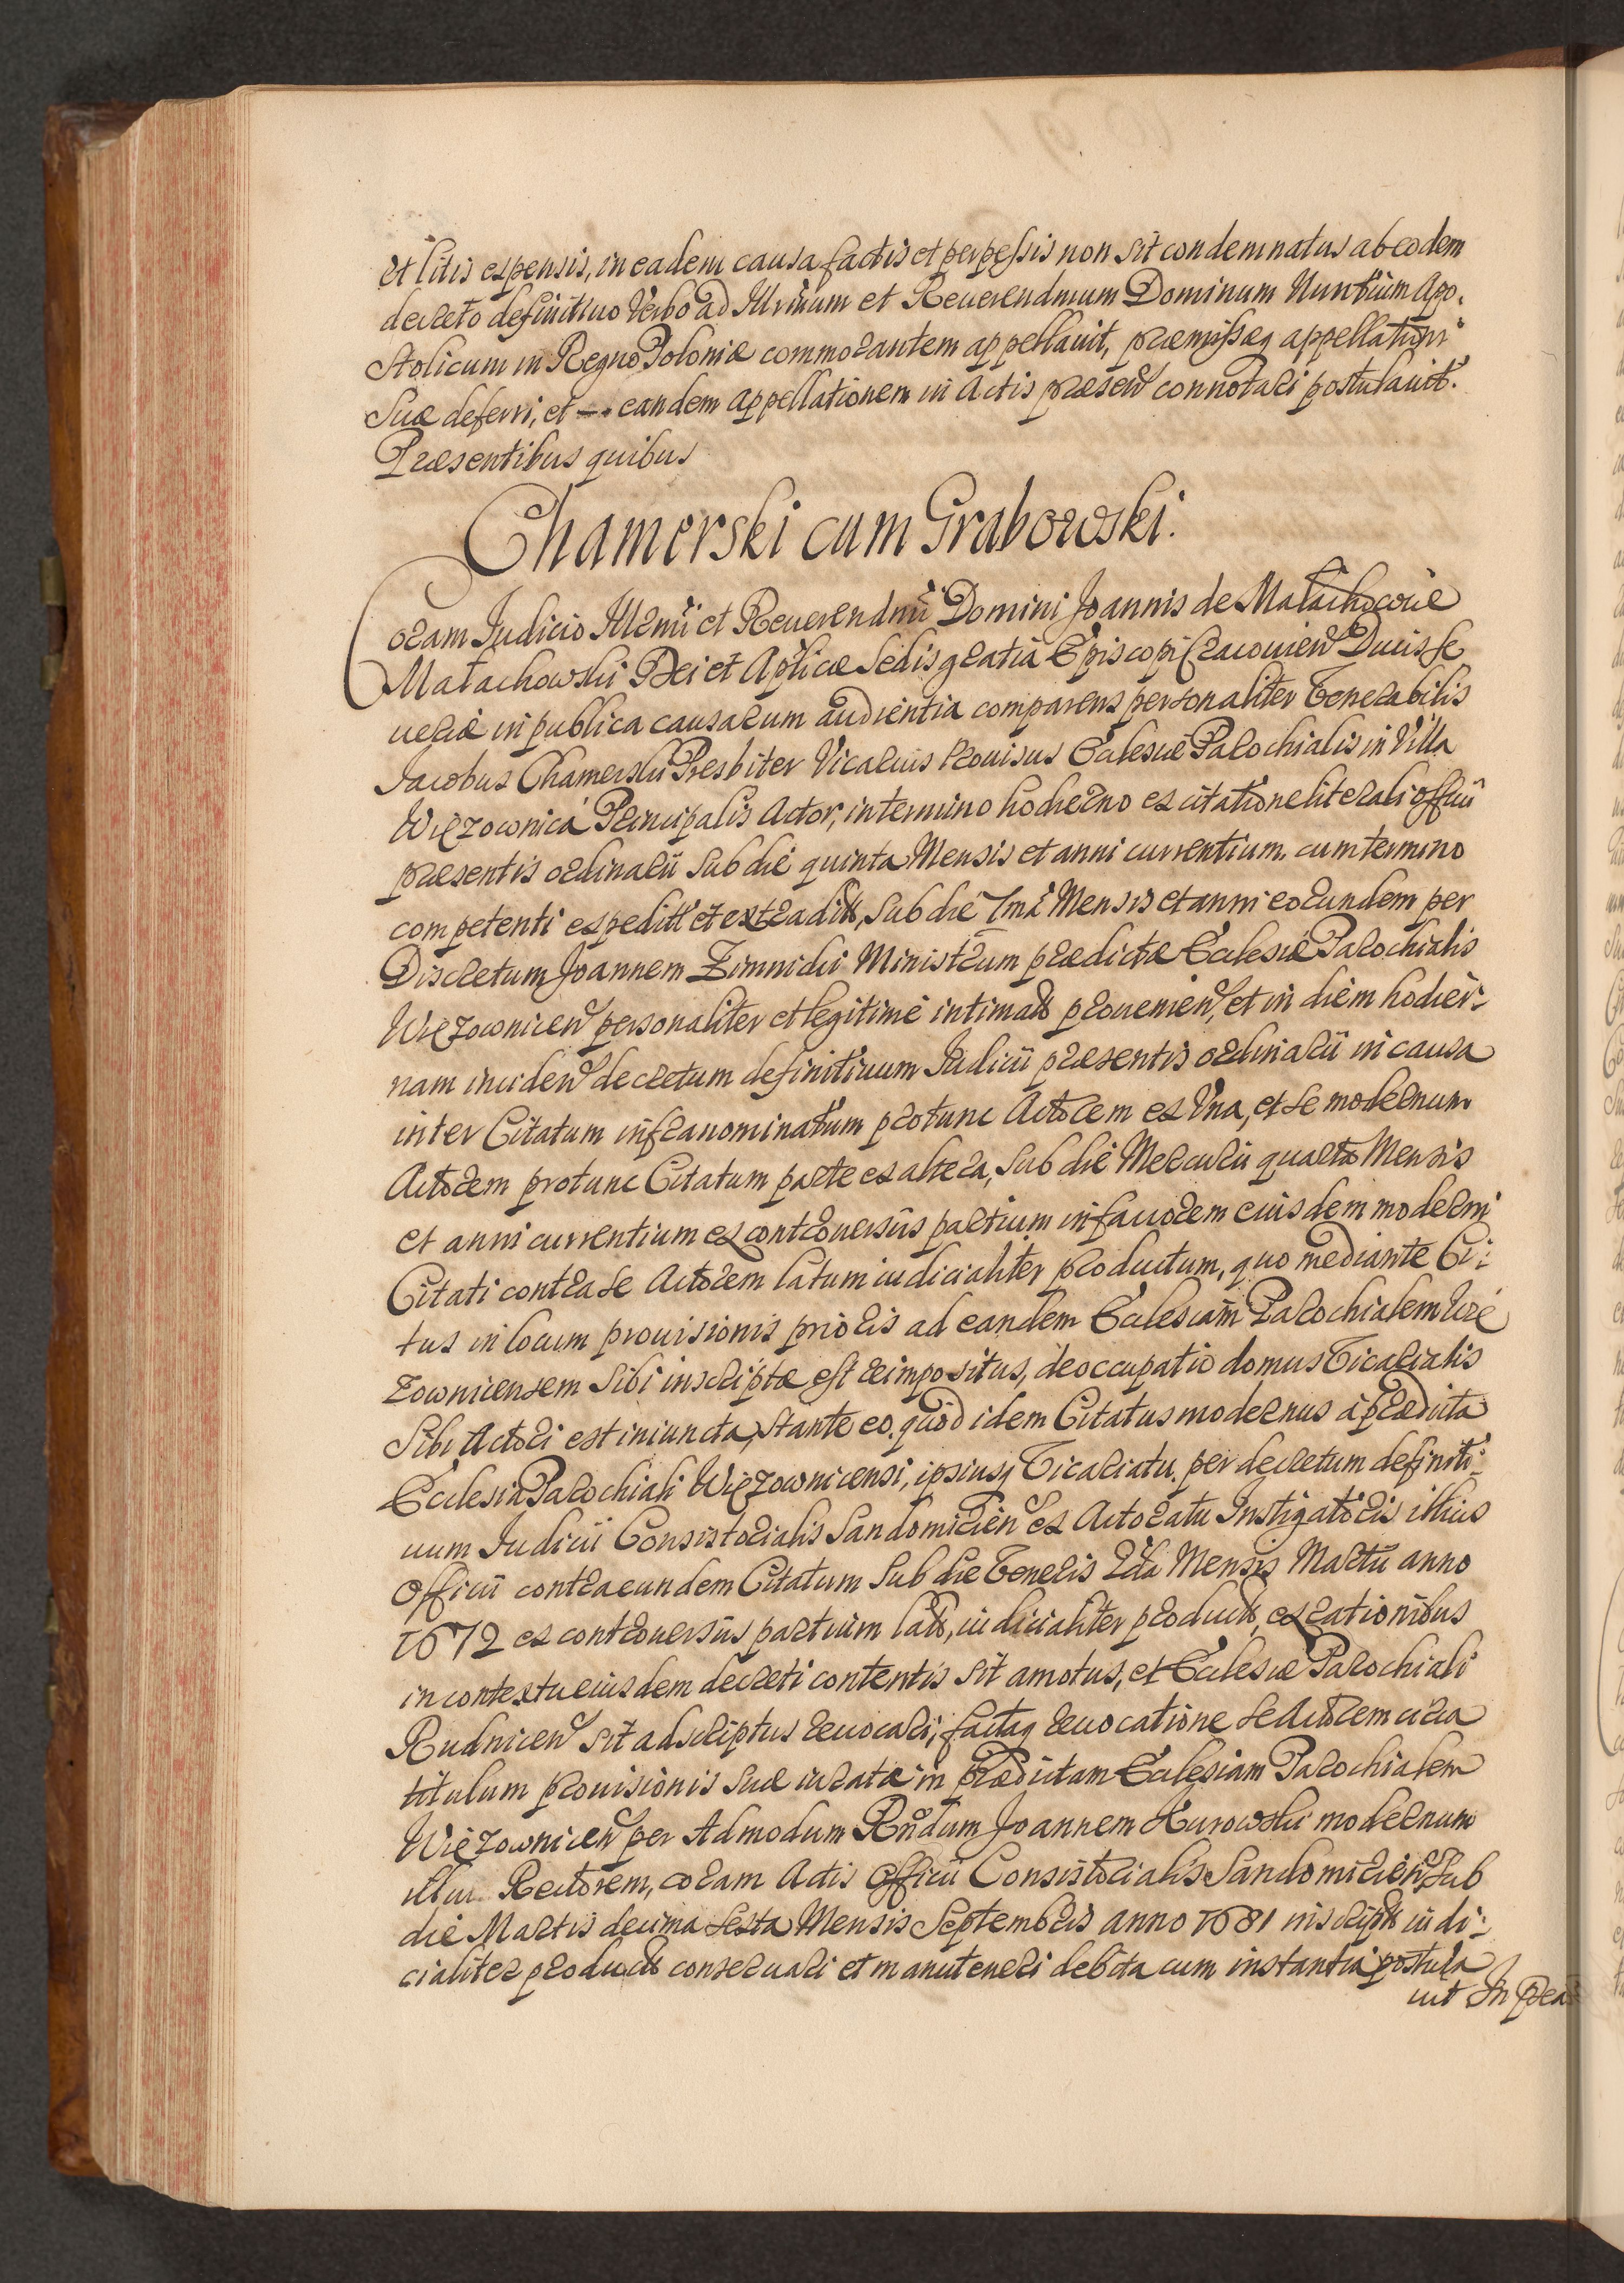 et litis expensis, in eadem causa factis et perpessis non sit condemnatus ab eodem
decreto definitiuo verbo ad Illrmum et Reuerendmum Dominum Nuntium Apo.
stolicum in Regno Poloniæ commorantem appellauit, præmissæq appellationi
suæ deferri, et eandem appellationem in Actis præsen connotari postulauit.
Præsentibus quibus
Chamerski cum Grabowski.
Coram Iudicio Illrmi et Reuerendmi Domini Joannis de Małachowice
Małachowski Dei et Aplicæ Sedis gratia Episcopi Cracouien Ducis Se
ueriæ in publica causarum audientia comparens personaliter Venerabilis
Jacobus Chamerski Presbiter Vicarius Prouisus Ecclesiæ Parochialis in Villa
Więzownica Principalis Actor, in termino hodierno ex citatione literali Officii
præsentis ordinarii sub die quinta Mensis et anni currentium. cum termino
competenti expedit et extradit, sub die 7ma Mensis et anni eorundem per
Discretum Joannem Zimnicki Ministrum prædictæ Ecclesiæ Parochialis
Więzownicen personaliter et legitime intimat prouenien, et in diem hodier:
nam inciden decretum definitiuum Iudicii præsentis ordinarii in causa
inter Citatum infranominatum protunc Actorem ex Vna, et se modernum
Actorem protunc Citatum parte ex altera, sub die Mercurii quarta Mensis
et anni currentium ex controuersiis partium in fauorem eiusdem moderni
Citati contra se Actorem latum iudicialiter productum, quo mediante Ci:
tus in locum prouisionis prioris ad eandem Ecclesiam Parochialem Wię
zownicensem sibi inscriptæ est reimpositus, deoccupatio domus Vicarialis
sibi Actori est iniuncta, stante eo. quod idem Citatus modernus à prædicta
Ecclesia Parochiali Więzownicensi, ipsiusq Vicariatu, per decretum definiti:
uum Iudicii Consistorialis Sandomirien ex Actoratu Instigatoris illius
Officii contra eundem Citatum sub die Veneris 2da Mensis Martii anno
1672 ex controuersiis partium lat, iudicialiter product, ex rationibus
in contextu eiusdem decreti contentis sit amotus, et Ecclesiæ Parochiali
Rudnicen sit adscriptus reuocari, factaq reuocatione se Actorem circa
titulum prouisionis suæ iuratæ in prædictam Ecclesiam Parochialem
Więzownicen per Admodum Rndum Joannem Kurowski modernum
illius Rectorem, coram Actis Officii Consistorialis Sandomirien, sub
die Martis decima sexta Mensis Septembris anno 1681 inscript iudi:
cialiter product conseruari et manuteneri debita cum instantia postula
uit In præ